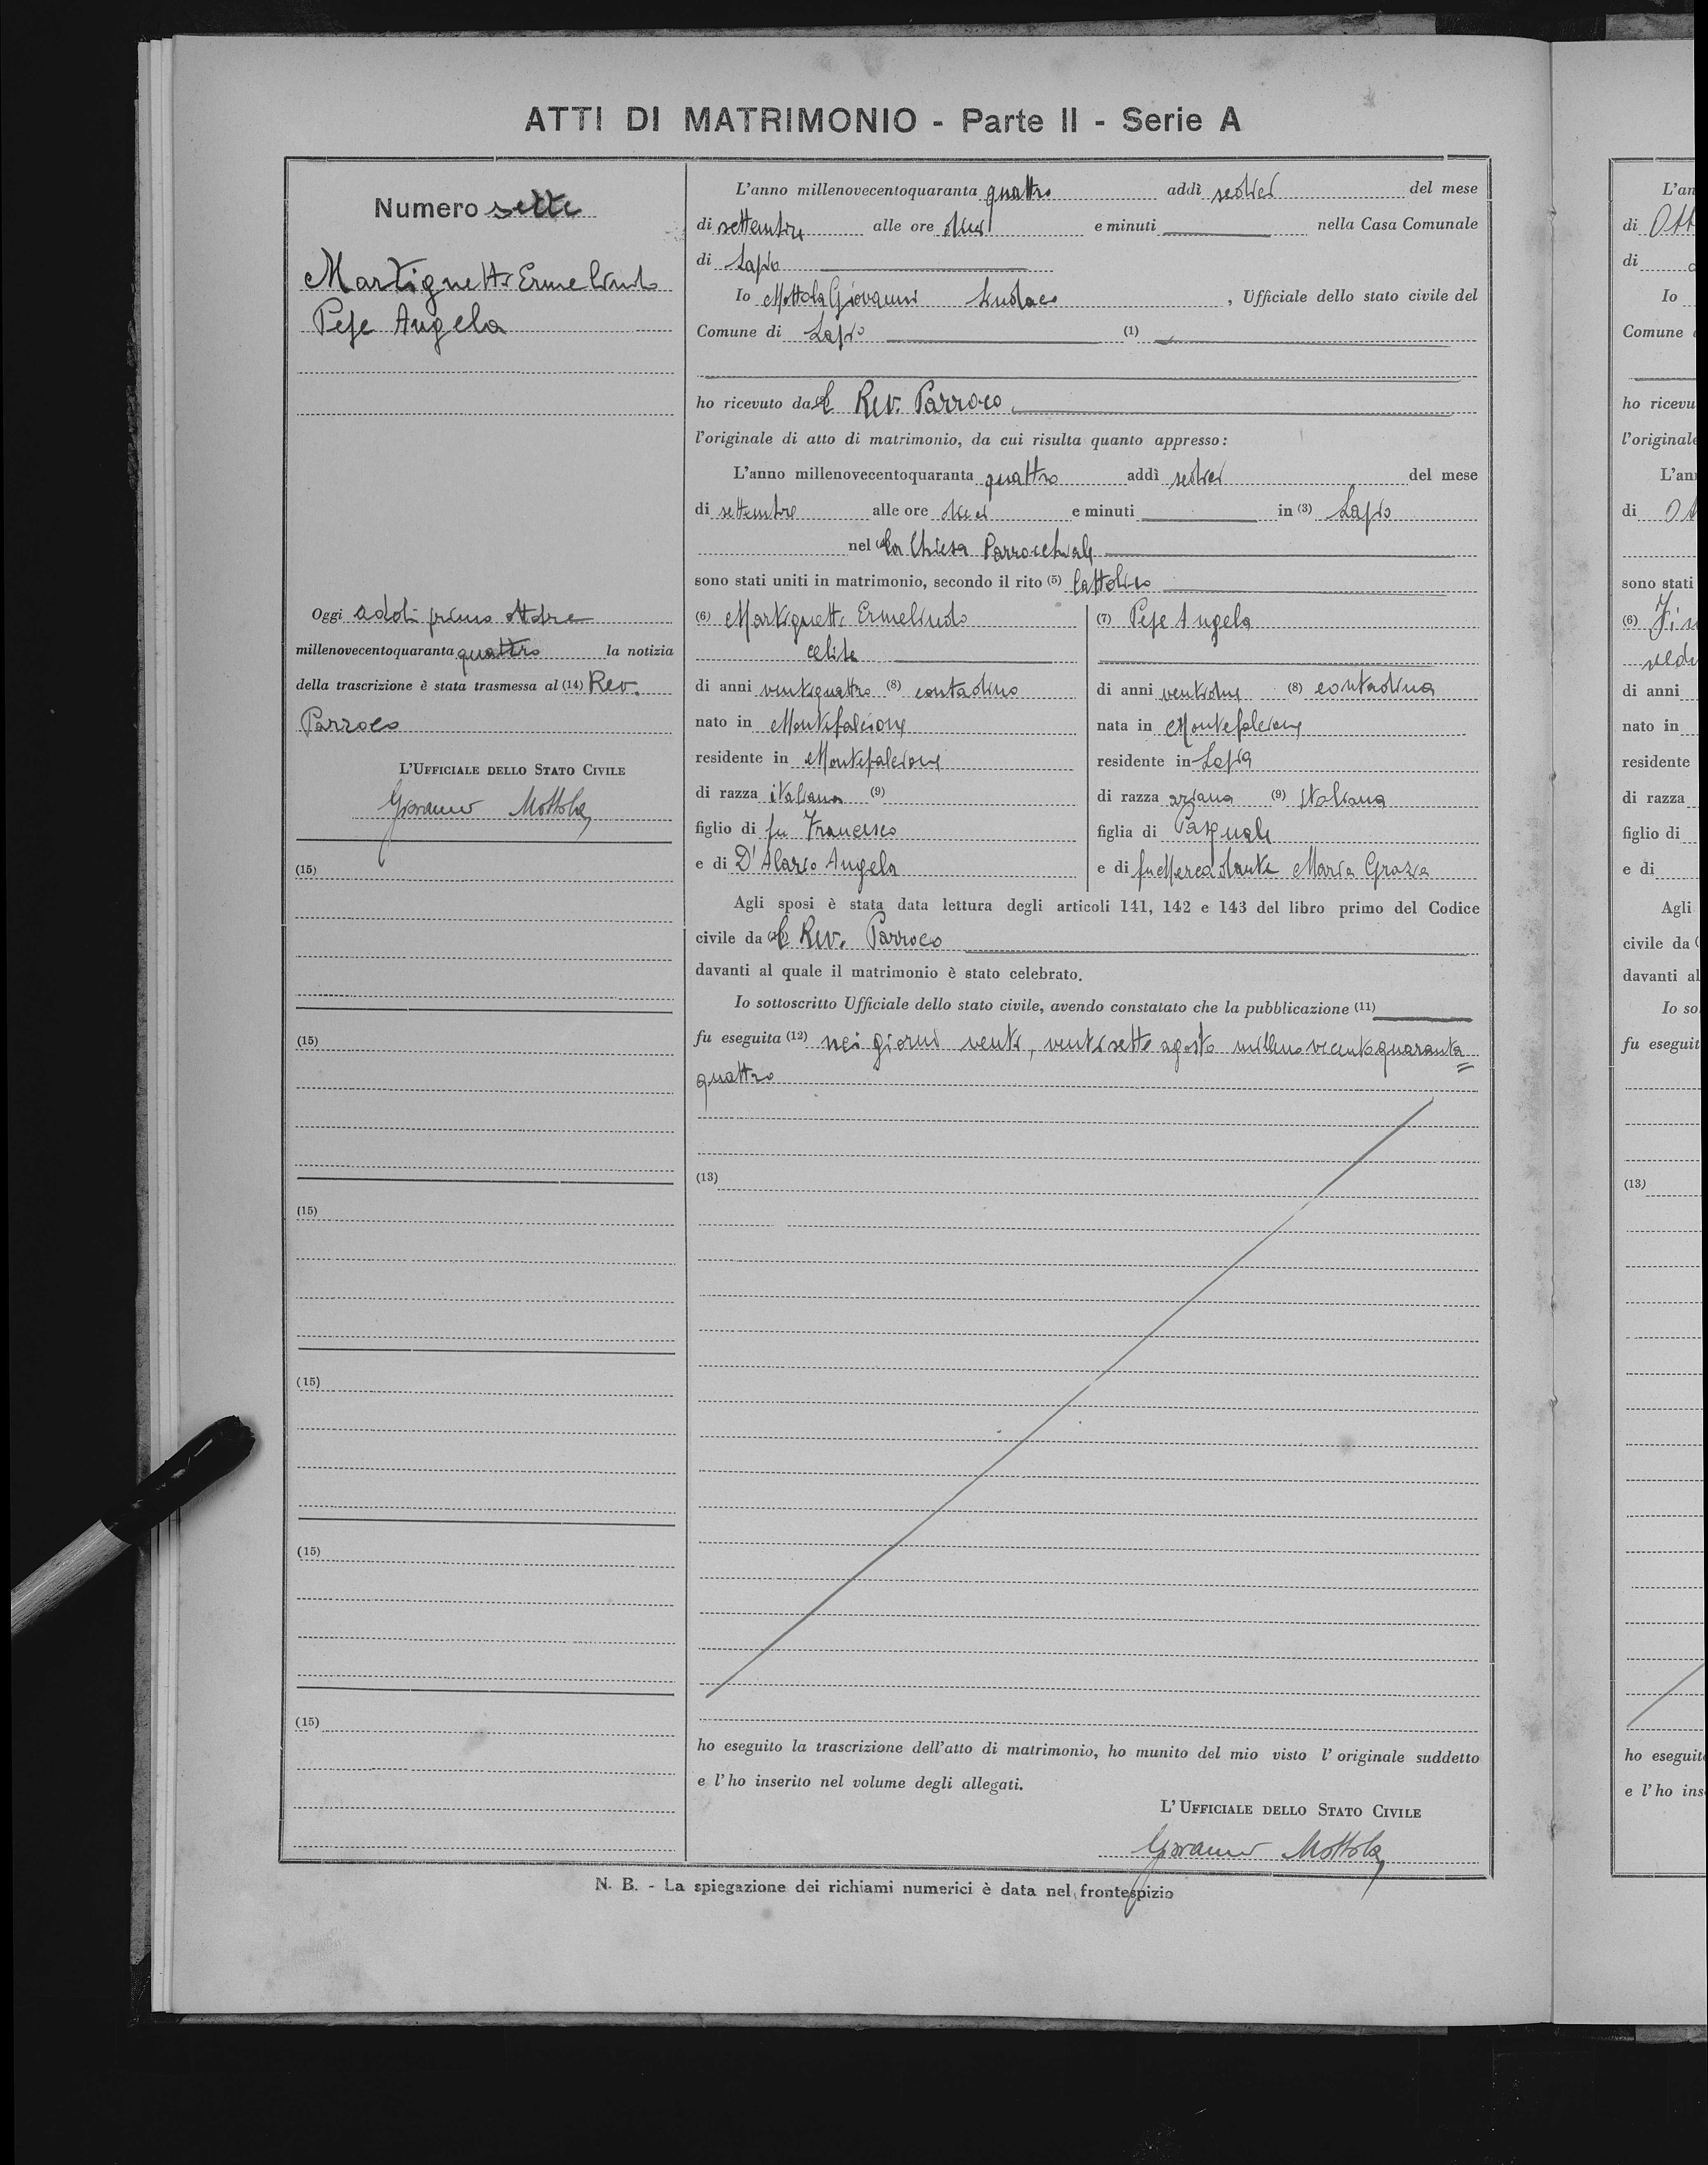 ATTI DI MATRIMONIO - Parte II - Serie A
Numero sette
Martignetti Ermelindo
Pepe Angela
Oggi addi primo ottobre
millenovecentoquaranta quattro la notizia
della trascrizione è stata trasmessa al (14) Rev.
Parroco
L'UFFICIALE DELLO STATO CIVILE
Giovanni Mottola
(15)
(15)
(15)
(15)
(15)
(15)
L'anno millenovecentoquaranta quattro addì sedici del mese
di settembre alle ore dieci e minuti nella Casa Comunale
di Lapio
Io Mottola Giovanni Sindaco , Ufficiale dello stato civile del
Comune di Lapio (1)
ho ricevuto dal Rev. Parroco
l'originale di atto di matrimonio, da cui risulta quanto appresso:
L'anno millenovecentoquaranta quattro addì sedici del mese
di settembre alle ore dieci e minuti in (3) Lapio
nella Chiesa Parrocchiale
sono stati uniti in matrimonio, secondo il rito (5) Cattolico
(6) Martignetti Ermelindo
celibe
di anni ventiquattro (8) contadino
nato in Montefalcione
residente in Montefalcione
di razza italiana (9)
figlio di fu Francesco
e di D'Alario Angela
(7) Pepe Angela
di anni ventidue (8) contadina
nata in Montefalcione
residente in Lapio
di razza ariana (9) italiana
figlia di Pasquale
e di fu Mercadante Maria Grazia
Agli sposi è stata data lettura degli articoli 141, 142 e 143 del libro primo del Codice
civile da l Rev. Parroco
davanti al quale il matrimonio è stato celebrato.
Io sottoscritto Ufficiale dello stato civile, avendo constatato che la pubblicazione (11)
fu eseguita (12) nei giorni venti, ventisette agosto millenovecentoquaranta=
quattro
(13)
ho eseguito la trascrizione dell'atto di matrimonio, ho munito del mio visto l'originale suddetto
e l'ho inserito nel volume degli allegati.
L'UFFICIALE DELLO STATO CIVILE
Giovanni Mottola
N. B. - La spiegazione dei richiami numerici è data nel frontespizio
L'an
di Ott
di
Io
Comune
ho ricevu
l'originale
L'an
di
sono stati
(6)
di anni
nato in
residente
di razza
figlio di
e di
Agli
civile da (
davanti al
Io so
fu eseguit
(13)
ho eseguit
e l'ho ins